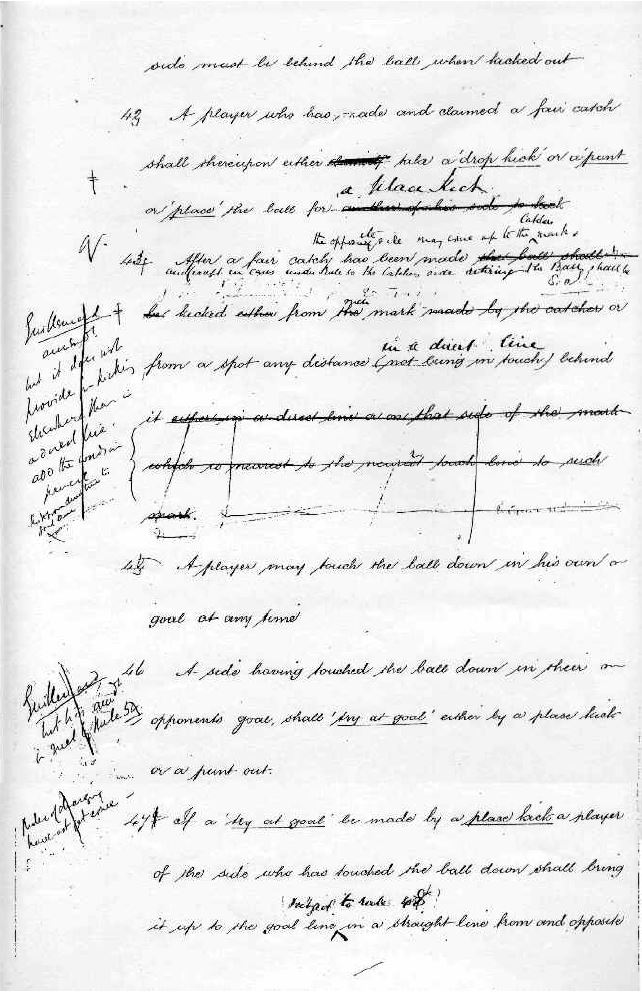 side must be behind the ball when kicked out
43 A player who has made and claimed a fair catch
shall thereupon either take a 'drop kick' or a 'punt
a Place Kick
or 'place' the ball for another of his side to kick
the opposing side may come up to the Catchers mark &
44 After a fair catch has been made the ball shall
and except in cases under Rule 50 the Catchers side retiring the Ball shall be
be kicked either from the mark made by the catcher or
in a direct line
from a spot any distance (not being in touch) behind
it either in a direct line or on that side of the mark
which is nearest to the nearest touch line to such
mark.
45 A player may touch the ball down in his own
goal at any time
46 A side having touched the ball down in their
opponents goal, shall 'try at goal' either by a place kick
or a punt out.
47 If a 'try at goal' be made by a place kick a player
of the side who has touched the ball down shall bring
subject to rule 48
it up to the goal line in a straight line from and opposite
Guillemard
but it does not
provide for kicking
elsewhere than in
a direct line.
add the words in
Guillemard
Rule 59
Rules of charging
have not yet come